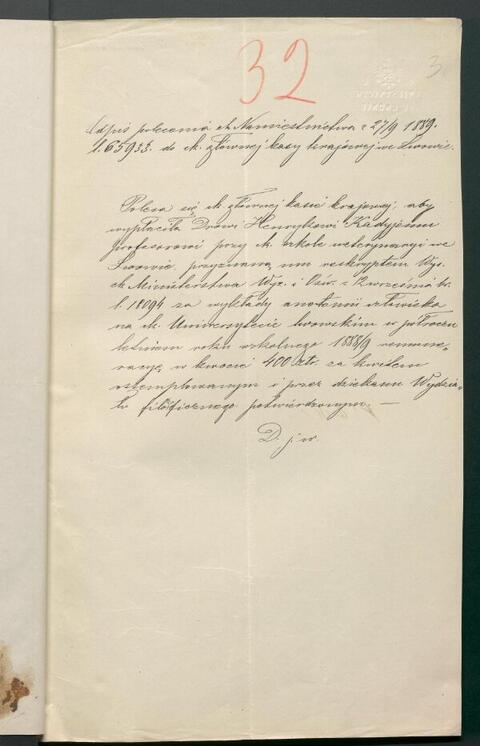 32
3
Odpis polecenia ck. Namiestnictwa z 27/9 1889.
l. 65933. do ck. głównej kasy krajowej we Lwowie.
Poleca się ck. głównej kasie krajowej, aby
wypłaciła Drowi Henrykowi Kadyjemu
profesorowi przy ck. szkole weterynaryi we
Lwowie, przyznaną mu reskryptem Wys.
ck. Ministerstwa Wyz. i Ośw. z 12 września br.
l. 18094 za wykłady anatomii człowieka
na ck. Uniwersytecie lwowskim w półroczu
letniem roku szkolnego 1888/9 remune„
racyę w kwocie 400 złr. za kwitem
ostemplowanym i przez dziekana Wydzia„
łu filoficznego potwierdzonym. —
D. j. w.